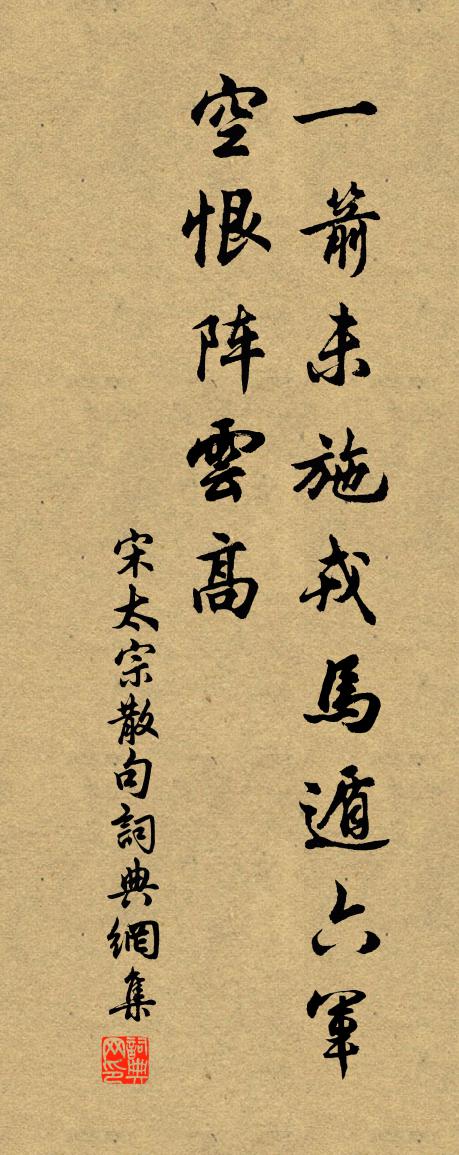 一箭未施戎馬遁六軍
空恨阵雲高
宋太宗散句詞典網集
詞典网印